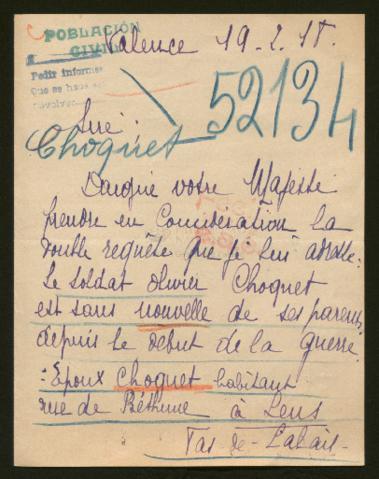 POBLACIÓN
CIVIL
Valence 19-2-15.
Pedir informes
Que se haga
52134
Sire.
Choquet
Daigne votre Majesté
prendre en Considération la
double requête que je lui adresse:
Le soldat Olivier Choquet
est sans nouvelle de ses parents
depuis le début de la guerre.
: Epoux Choquet habitant
rue de Béthune à Lens
Pas-de-Calais-